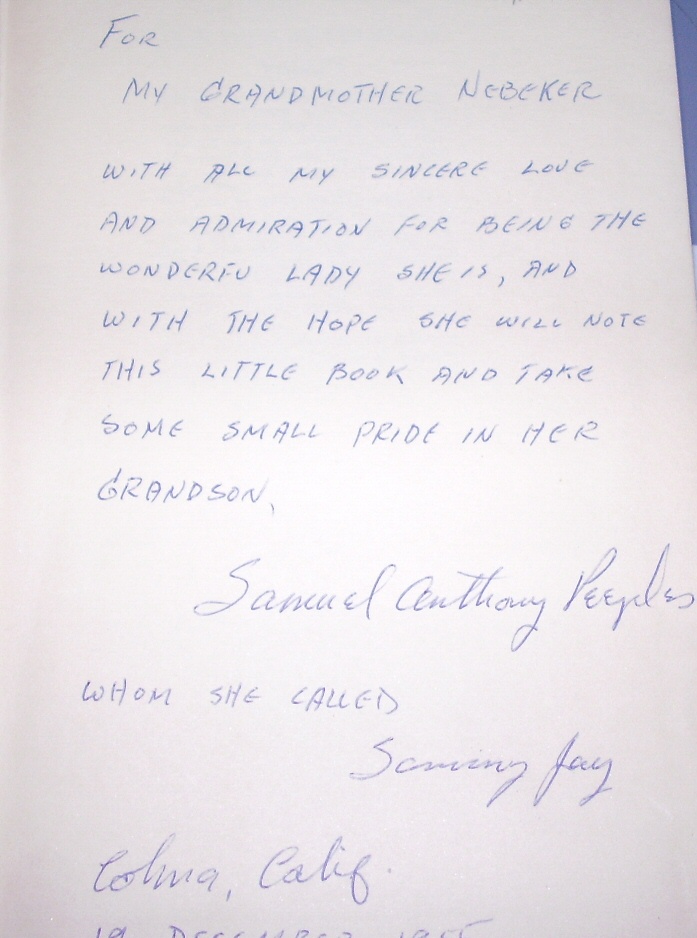 FOR
MY GRANDMOTHER NEBEKER
WITH ALL MY SINCERE LOVE
AND ADMIRATION FOR BEING THE
WONDERFU LADY SHE IS, AND
WITH THE HOPE SHE WILL NOTE
THIS LITTLE BOOK AND TAKE
SOME SMALL PRIDE IN HER
GRANDSON,
Samuel Anthony Peeples
WHOM SHE CALLED
Sammy Jay
Colma, Calif.
19 DECEMBER 1955